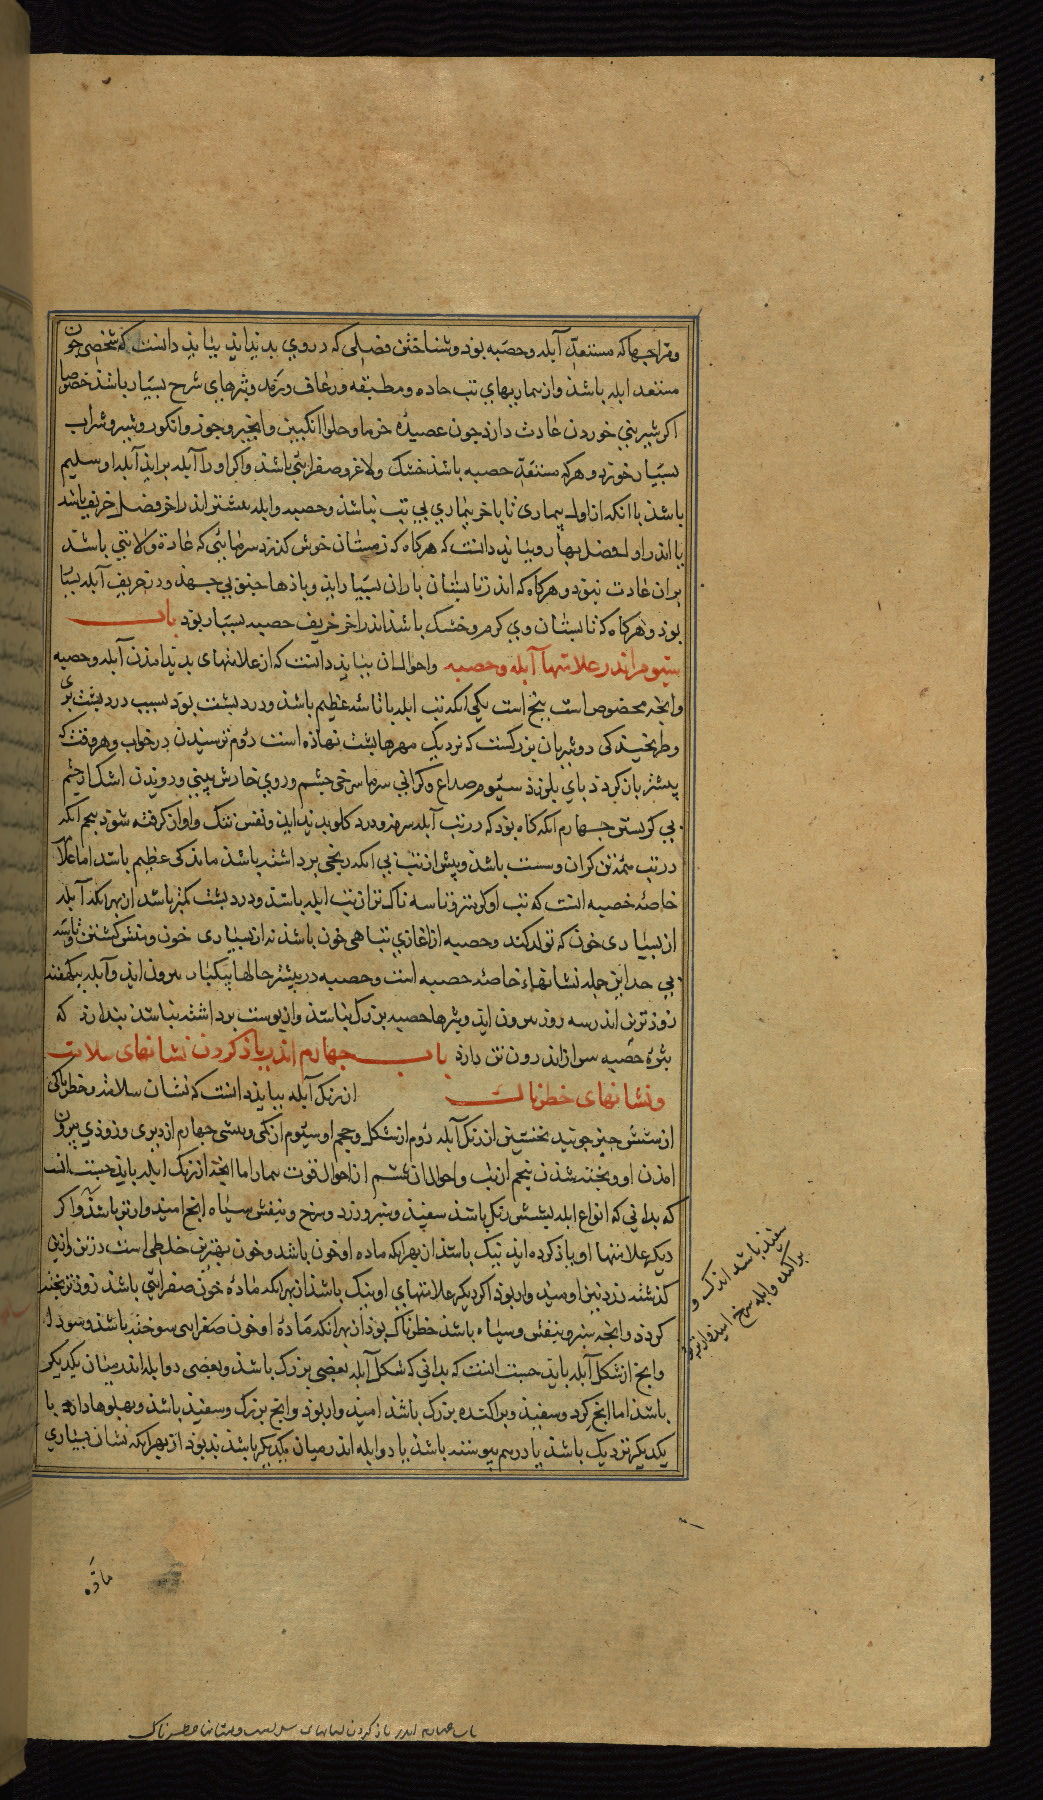 ومزاجها که مستعد آبله وحصبه بوذ وشناختن فصلی که در وی بدیذ اید ببایذ دانست که شخصی جون
مستعد ابله باشذ واز بیماریهای تب حاده ومطبقه ورعاف ورمد وبثرهای سرخ بسیار باشذ خصوصا
اکر شیرینی خوردن عادت دارذ جون عصیده خرما وحلوا انکبین وانجیر وجوز وانکور وشیر وشراب
بسیار خورذ وهرکه مستعد حصبه باشذ خشک ولاغر وصفرایی باشذ واکر او را آبله برایذ آبله او سلیم
باشذ با انکه از اول بیماری تا باخر بیماری بی تب نباشذ وحصبه وابله بیشتر اندر اخر فصل خریف باشد
یا اندر اول فصل بهار وببایذ دانست که هرکاه که زمستان خوش کذرد سرمایی که عادة ولایتی باشذ
بران عادت نبوذ وهرکاه که اندر تابستان باران بسیار ایذ وباذها جنوبی جهذ ودر خریف آبله بسیار
بوذ وهرکاه که تابستان وی کرم وخشک باشذ اندر اخر خریف حصبه بسیار بوذ باب
سیوم اندر علامتها آبله وحصبه واحوال ان ببایذ دانست که از علامتهای بدیذ امذن آبله وحصبه
وانجه مخصوص است پنج است یکی انکه تب ابله با تاسه عظیم باشذ ودرد پشت بوذ بسبب درد پشت پری
وطرنجیذکی دو شریان بزرکست که نزدیک مهرها پشت نهاذه است دوم ترسیذن در خواب وهر وقت که
پیشتر باز کردد بای بلرزذ سیوم صداع وکرانی سر با سرخی جشم وروی خارش بینی ودویذن اشک از جشم
بی کریستن جهارم انکه کاه بوذ که در تب آبله سرفه ودرد کلو بدیذ اید ونفس تنک واواز کرفته شوذ بنجم انکه
در تب همه تن کران وسست باشذ وپیش از تب بی انکه رنجی برداشته باشذ ماندکی عظیم باشد اما علامة
خاصه حصبه انست که تب او کرمتر وتاسه ناک تر از تب ابله باشذ ودرد پشت کمتر باشد از بهر انکه آبله
از بسیاری خون که تولد کند وحصبه از اغازی تباهی خون باشذ نه از بسیاری خون ومنش کشتن وتاسه
بی حد این جمله نشانهاء خاصه حصبه است وحصبه در بیشتر حالها بیکبار بیرون ایذ وآبله بیک هفته
زوذترین اندر سه روز بیرون ایذ وبثرها حصبه بزرک نباشذ واز پوست برداشته نباشذ بندارذ که
بثوره حصبه سر از اندرون تن دارذ باب جهارم اندر یاذ کردن نشانهای سلامت
ونشانهای خطرناک از رنک آبله ببایذ دانست که نشان سلامة وخطرناکی
از شش جیز جویند نخستین از رنک آبله دوم از شکل وحجم او سیوم از کمی وبیشی جهارم از دیری وزوذی بیرون
امذن او وپخته شذن پنجم از تب واحوال ان ششم از احوال قوت بیمار اما انجه از رنک ابله بایذ جست انست
که بدانی که انواع ابله بشش رنک باشذ سفیذ وسبز وزرد وسرخ وبنفش وسیاه انج امیذوارتر باشذ واکر
دیکر علامتها او یاذ کرده ایذ نیک باشذ از بهر انکه ماده او خون باشد وخون بهترین خلطی است در تن وازین
کذشته زرد نیز اومیذوار بوذ اکر دیکر علامتهای او نیک باشذ از بهر انکه ماده خون صفرایی باشذ زوذتر پخته
کردذ وانجه سبز وبنفش وسیاه باشذ خطرناک بوذ از بهر انکه مادة او خون صفرایی سوخته باشذ وسودا
وانج از شکل آبله بایذ جست انست که بدانی که شکل آبله بعضی بزرک باشذ وبعضی دو ابله اندر میان یکدیکر
باشذ اما انج کرد وسفیذ وپراکنده بزرک باشذ امیذوار بوذ وانج بزرک وسفیذ باشذ وپهلوها دارد یا
یکدیکر نزدیک باشذ یا درهم پیوسته باشذ یا دو ابله اندر میان یکدیکر باشذ بد بوذ از بهر انکه نشان بسیاری
سفید باشد اندک و
پراکنده وابله سرخ امیذوارتر
ماده
باب جهارم اندر یاذ کردن نشانهای سلامت ونشانها خطرناک